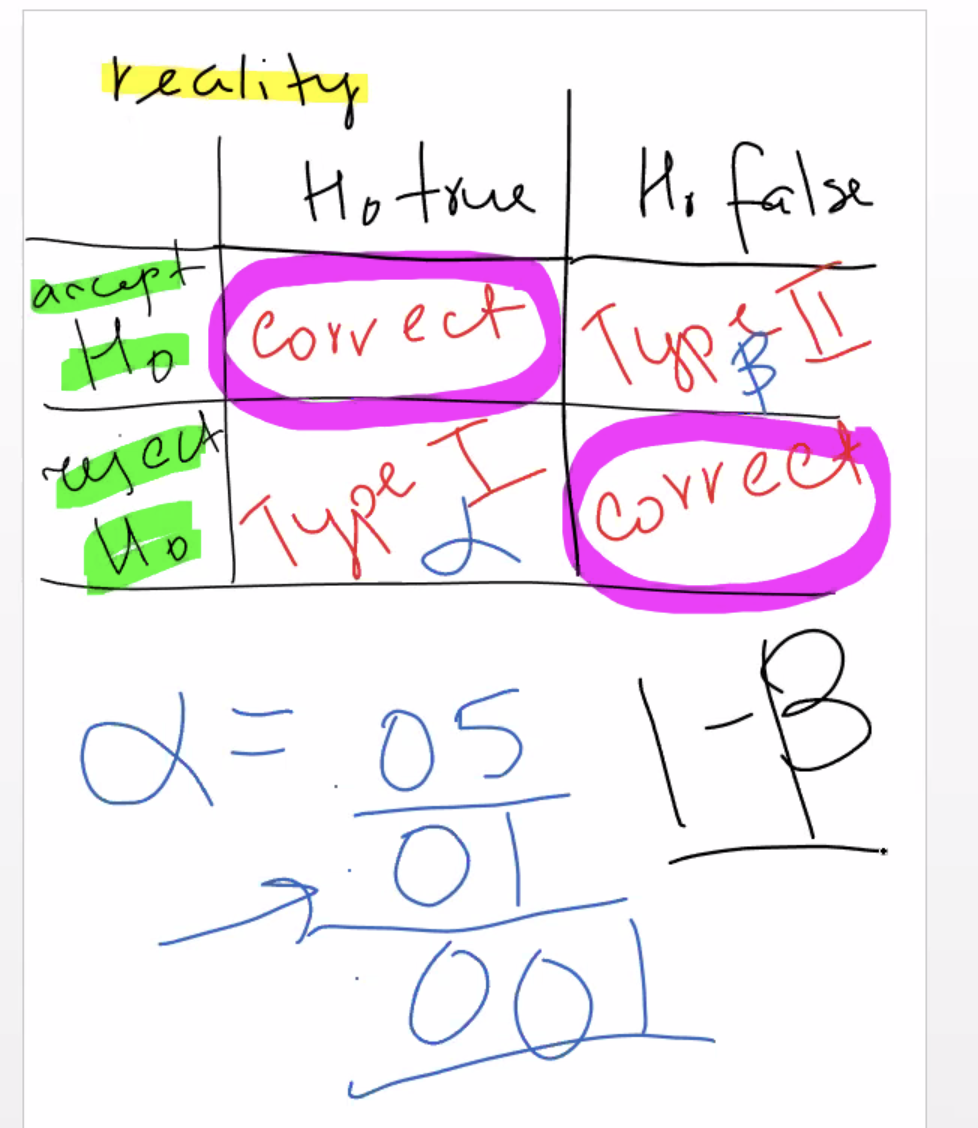 reality
H₀ true H₀ false
accept H₀ correct Type II β
reject H₀ Type I α correct
α = .05
.01
.001
1 - β